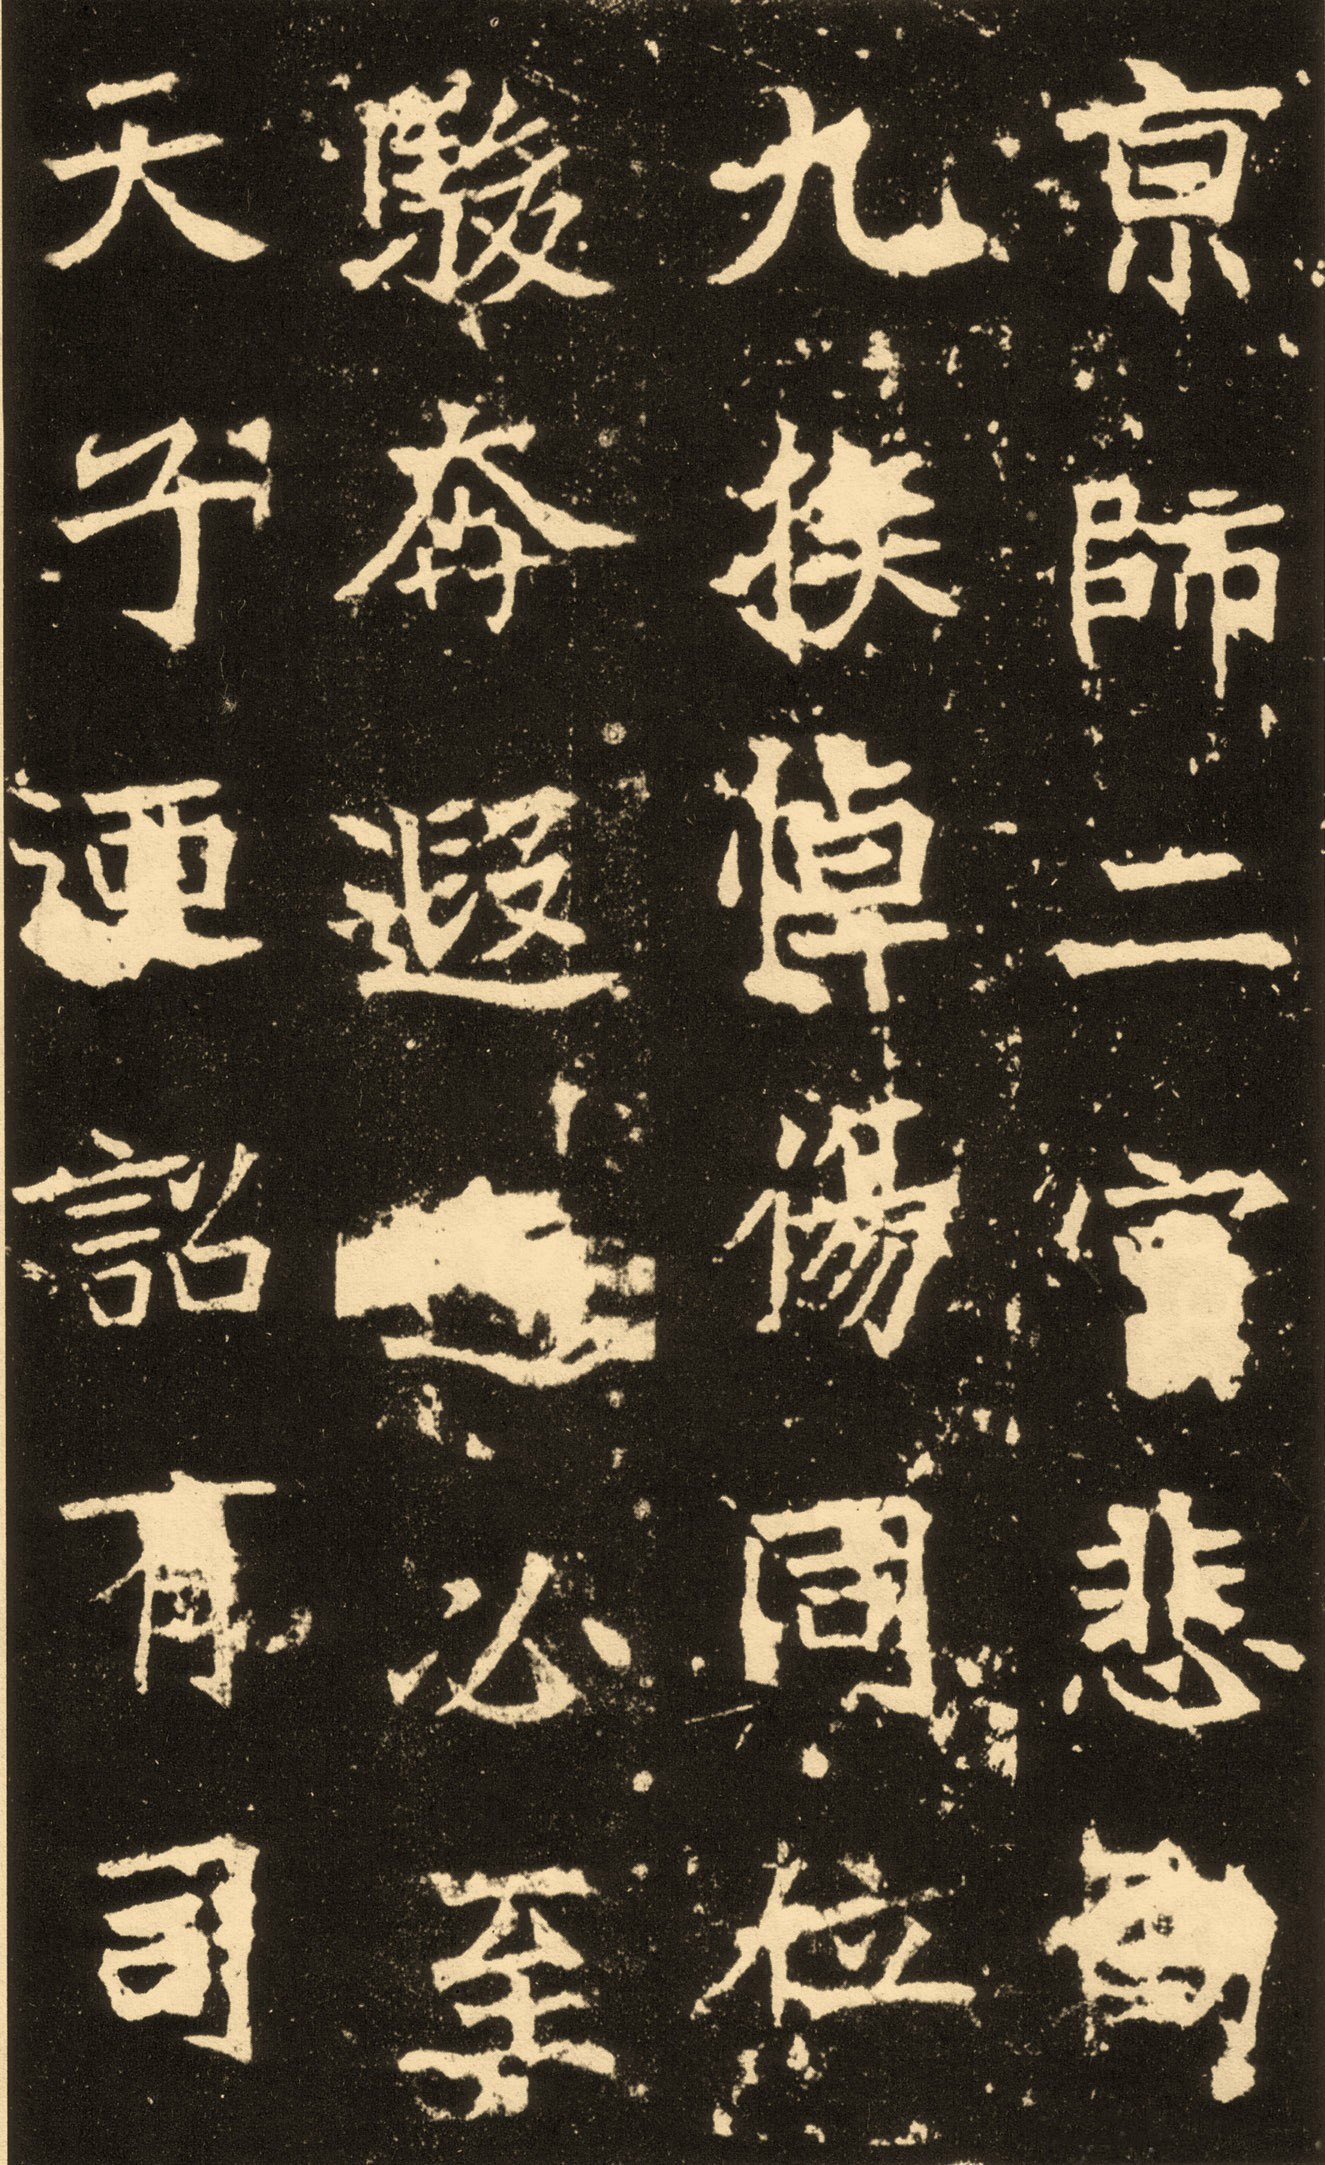 京師二宮悲
九族悼傷同位
駿奔遐必至
天子迺詔有司